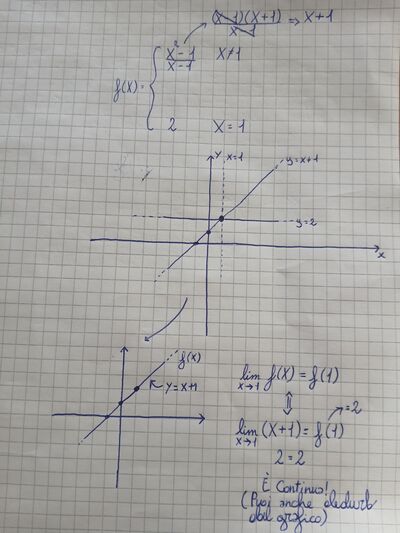 (x-1)(x+1) / x-1 => x+1
f(x) = { x²-1 / x-1   x≠1
2   x=1
y
x=1
y=x+1
y=2
x
f(x)
y=x+1
lim x→1 f(x) = f(1)
⇕
lim x→1 (x+1) = f(1) → =2
2=2
È Continuo!
(Puoi anche dedurlo
dal grafico)